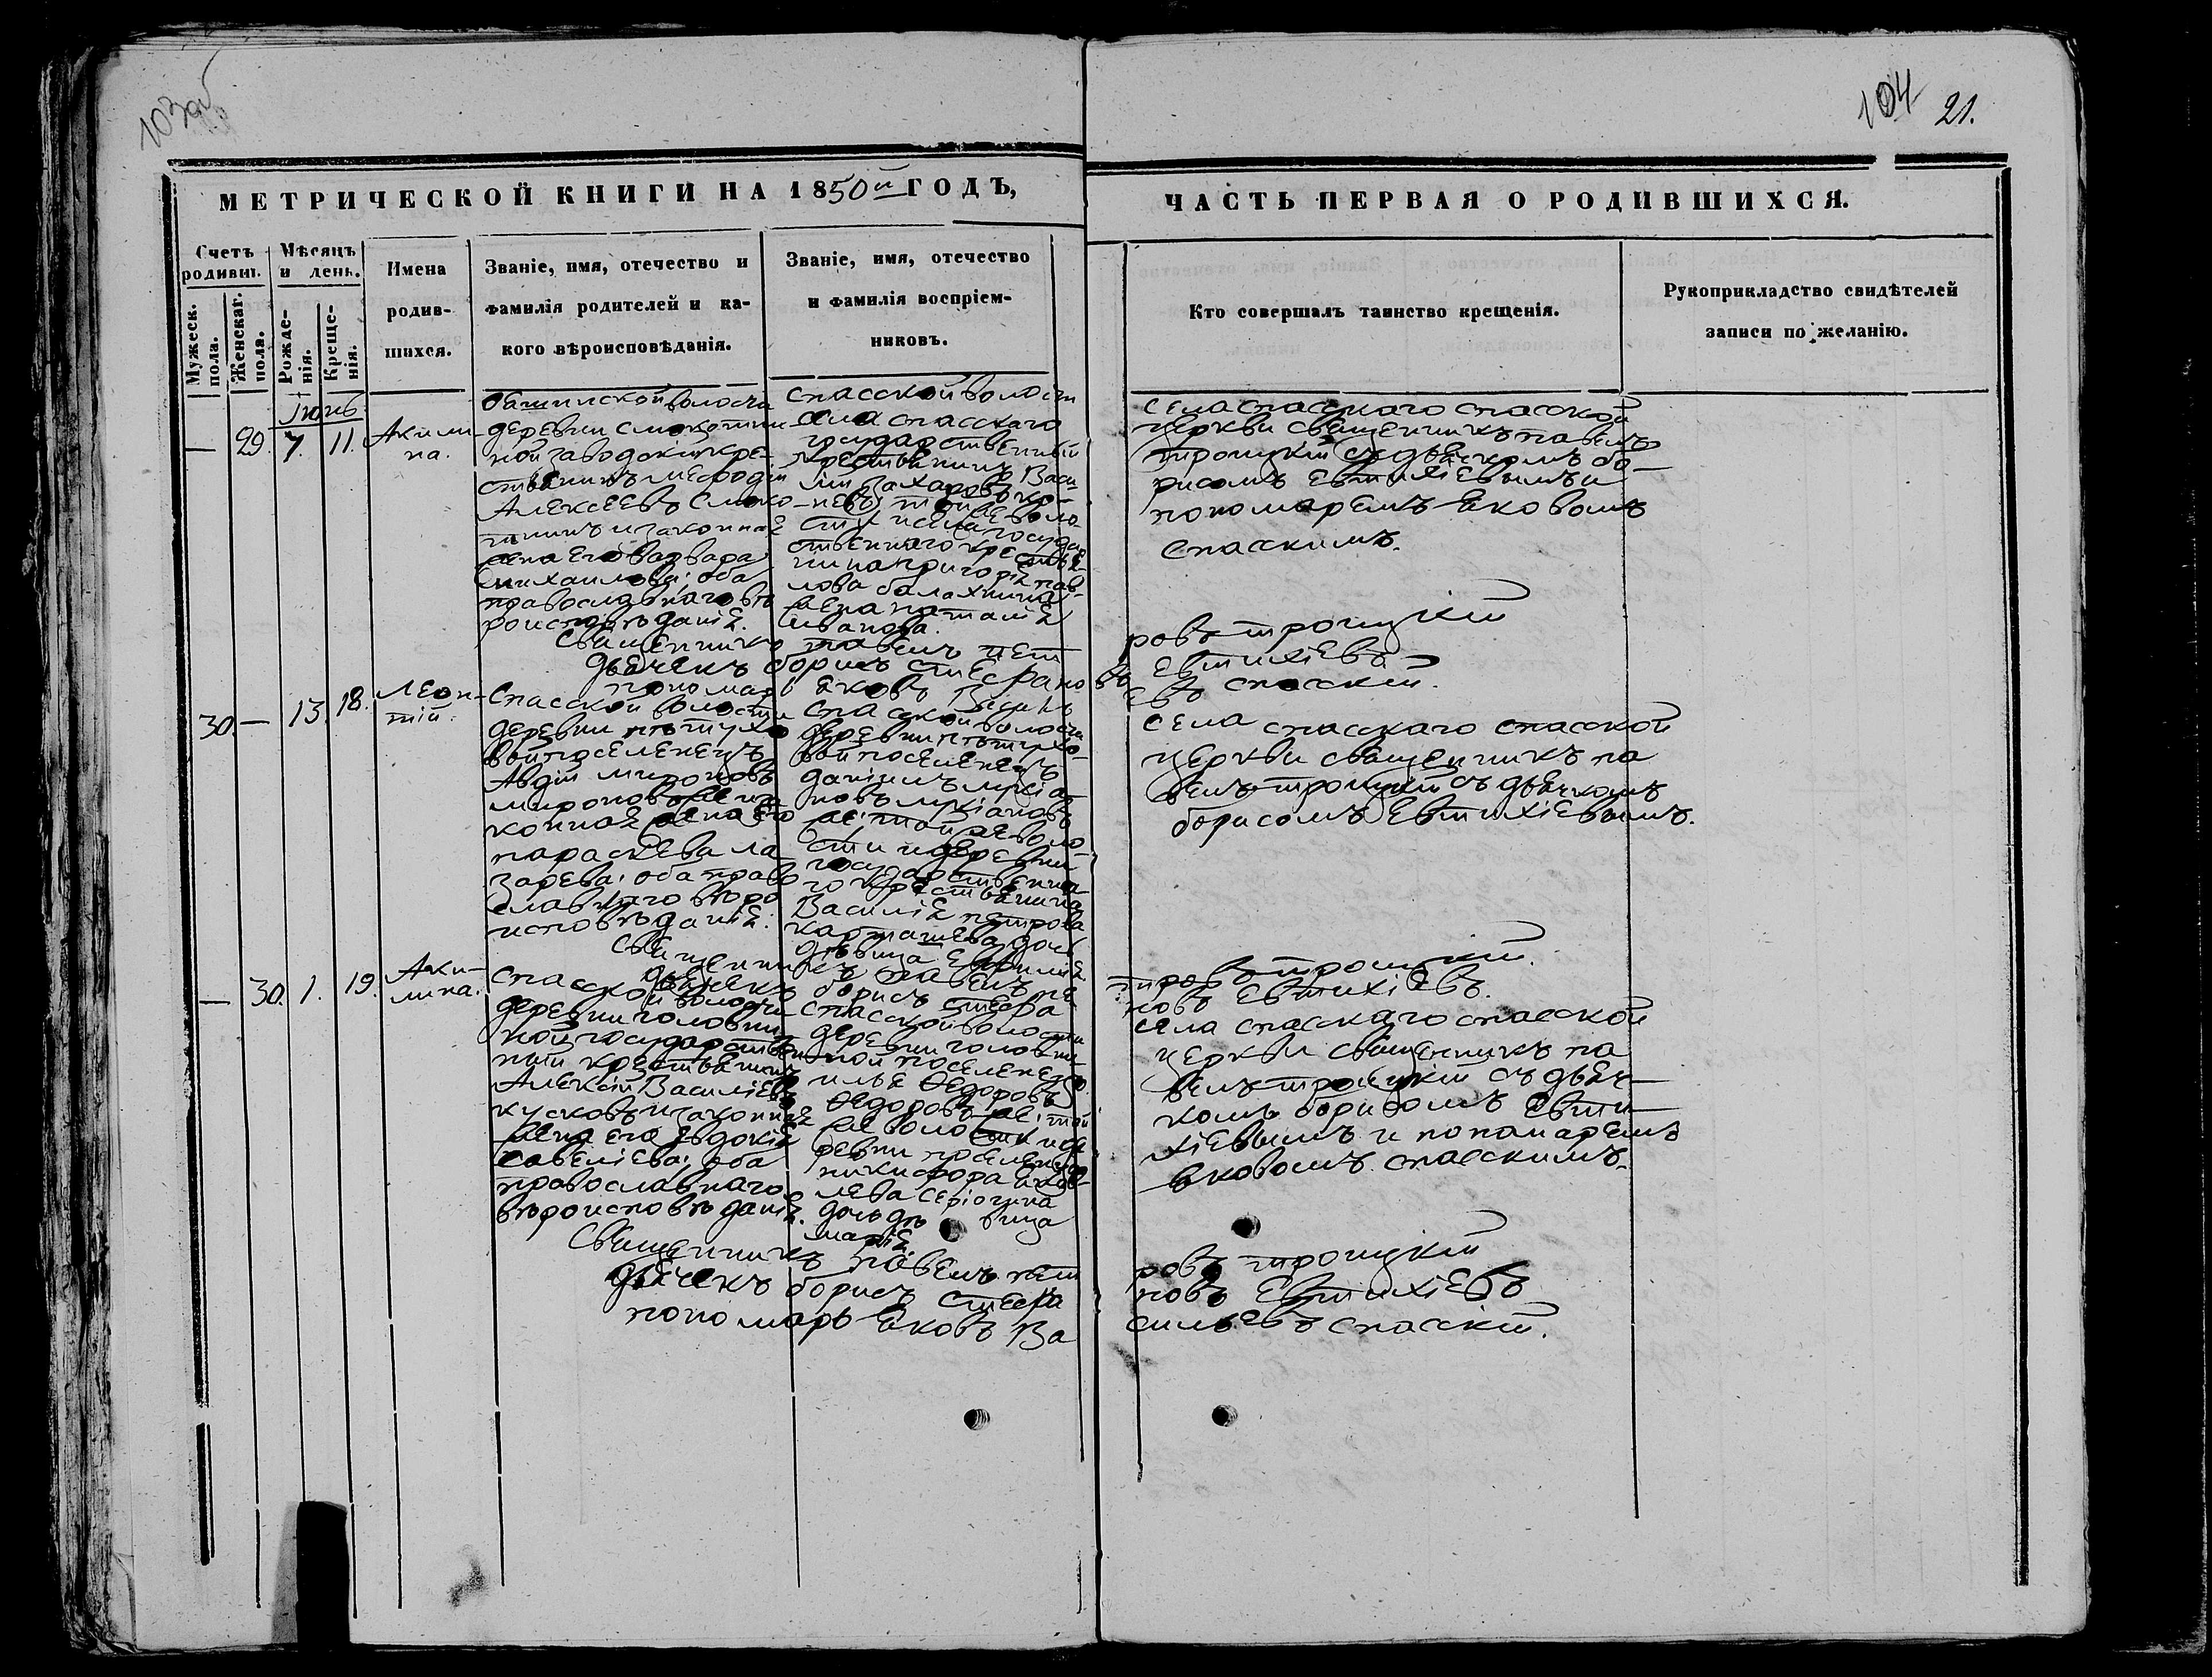 103об
104 21.
МЕТРИЧЕСКОЙ КНИГИ НА 1850й ГОДЪ,
Счетъ родивш.
Мужеск. пола.
Женскаг. пола.
Мѣсяцъ и день.
Рожде-нія.
Креще-нія.
Имена
родив-
шихся.
Званіе, имя, отечество и
фамилія родителей и ка-
кого вѣроисповѣданія.
Званіе, имя, отечество
и фамилія воспріем-
никовъ.
ЧАСТЬ ПЕРВАЯ О РОДИВШИХСЯ.
Кто совершалъ таинство крещенія.
Рукоприкладство свидѣтелей
записи по желанію.
Іюнь
— 29. 7. 11.
Акили-
на.
волости
деревни
ной заводскій кре-
стьянинъ Мефодій
Алексеевъ Смоко-
тинъ и законная
жена его Варвара
Михаилова: оба
православнаго вѣ
роисповѣданія.
спасской волости
села спасскаго
государственный
крестьянинъ Васи-
лій Захаровъ
той же воло-
сти и села государ
ственнаго крестья
нина Григорія пав-
лова балахнина
жена наталія
Иванова.
села спасскаго спасской
церкви священникъ павелъ
троицкій съ дьячкомъ бо-
рисомъ Евтихіевымъ и
пономаремъ Яковомъ
Спасскимъ.
Священникъ павелъ пет
ровъ троицкій
дьячекъ борисъ стефановъ
Евтихіевъ
пономарь Яковъ Василь
евъ спасскій.
30. — 13. 18.
Леон-
тій.
Спасской волости
деревни пѣтухо
вой поселенецъ
Авдій мироновъ
мироновъ же и за
конная жена его
параскева ла
зарева: оба право
славнаго вѣро
исповѣданія.
Спасской волости
деревни пѣтухо-
вой поселенецъ
даніилъ
новъ
же: той же воло-
сти и деревни
государственна
го крестьянина
Василія петрова
карташева дочь
дѣвица Евфимія
села спасскаго спасской
церкви священникъ па
велъ троицкій съ дьячкомъ
борисомъ Евтихіевымъ.
Священникъ павелъ пе
тровъ троицкій.
дьячекъ борисъ стефа
новъ Евтихіевъ.
— 30. 1. 19.
Аки-
лина.
Спасской волости
деревни головни
ной государствен
ный крестьянинъ
Алексій Василіевъ
кусковъ и законная
жена его Евдокія
савеліева: оба
православнаго
вѣроисповѣданія.
Спасской волости
деревни головни
ной поселенецъ
илья Ѳедоровъ
Ѳедоровъ же: той
же волости и де
ревни поселенца
никифора
лева Серіогина
дочь дѣвица
марія.
села спасскаго спасской
церкви священникъ па
велъ троицкій съ дьяч-
комъ борисомъ Евти-
хіевымъ и пономаремъ
Яковомъ спасскимъ.
Священникъ павелъ пет
ровъ троицкій
дьячекъ борисъ стефа
новъ Евтихіевъ
пономарь Яковъ Ва
сильевъ спасскій.